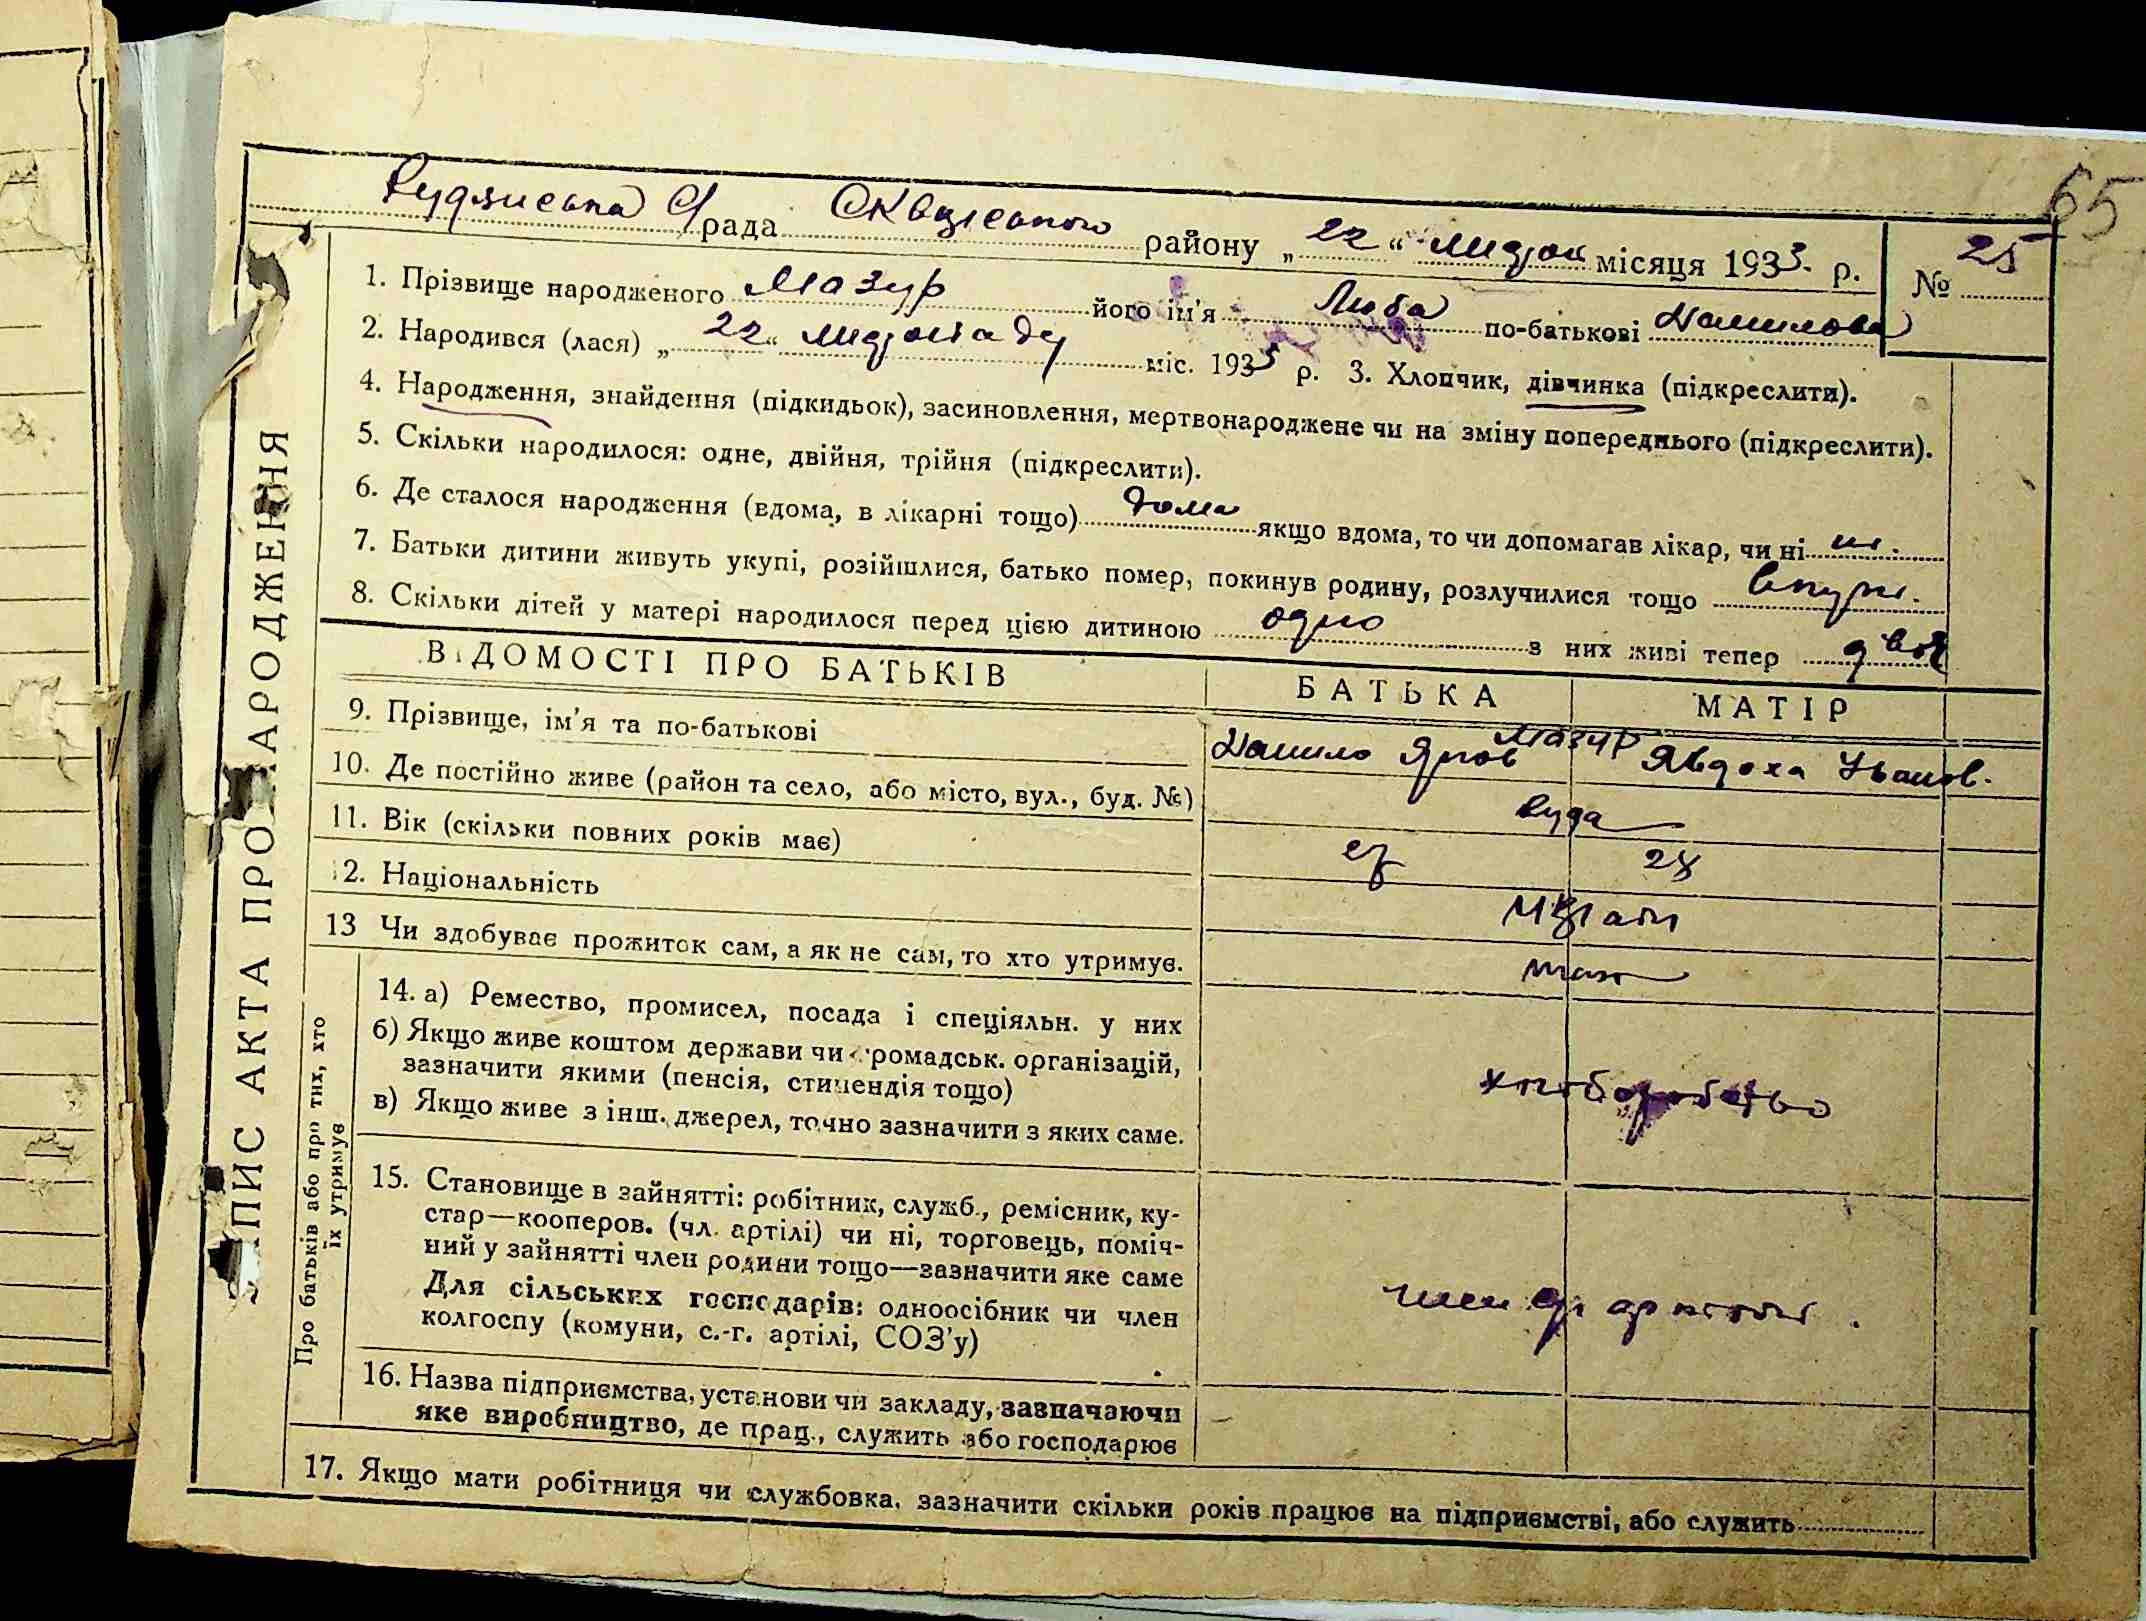 65
Рудянська С/рада Сквирського району „ 22 “ листоп місяця 1933 р. № 25
1. Прізвище народженого Мазур його ім'я Люба по-батькові Данилова
2. Народився (лася) „ 22 “ листопаду міс. 1933 р. 3. Хлопчик, дівчинка (підкреслити).
4. Народження, знайдення (підкидьок), засиновлення, мертвонароджене чи на зміну попереднього (підкреслити).
5. Скільки народилося: одне, двійня, трійня (підкреслити).
6. Де сталося народження (вдома, в лікарні тощо) дома якщо вдома, то чи допомагав лікар, чи ні ні.
7. Батьки дитини живуть укупі, розійшлися, батько помер, покинув родину, розлучилися тощо вкупі.
8. Скільки дітей у матері народилося перед цією дитиною одно з них живі тепер двоє
ВІДОМОСТІ ПРО БАТЬКІВ БАТЬКА МАТІР
9. Прізвище, ім'я та по-батькові Мазур Данило Яков Явдоха Іванов.
10. Де постійно живе (район та село, або місто, вул., буд. №) Руда
11. Вік (скільки повних років має) 28
12. Національність
13 Чи здобуває прожиток сам, а як не сам, то хто утримує.
14. а) Ремество, промисел, посада і спеціяльн. у них
б) Якщо живе коштом держави чи громадськ. організацій,
зазначити якими (пенсія, стипендія тощо)
в) Якщо живе з інш. джерел, точно зазначити з яких саме.
хліборобство
15. Становище в зайнятті: робітник, служб., ремісник, ку-
стар—кооперов. (чл. артілі) чи ні, торговець, поміч-
ний у зайнятті член родини тощо—зазначити яке саме
Для сільських господарів: одноосібник чи член
колгоспу (комуни, с.-г. артілі, СОЗ'у)
член с/г артілі.
16. Назва підприємства, установи чи закладу, зазначаючи
яке виробництво, де прац., служить або господарює
17. Якщо мати робітниця чи службовка, зазначити скільки років працює на підприємстві, або служить
ПИС АКТА ПРО НАРОДЖЕННЯ
Про батьків або про тих, хто
їх утримує